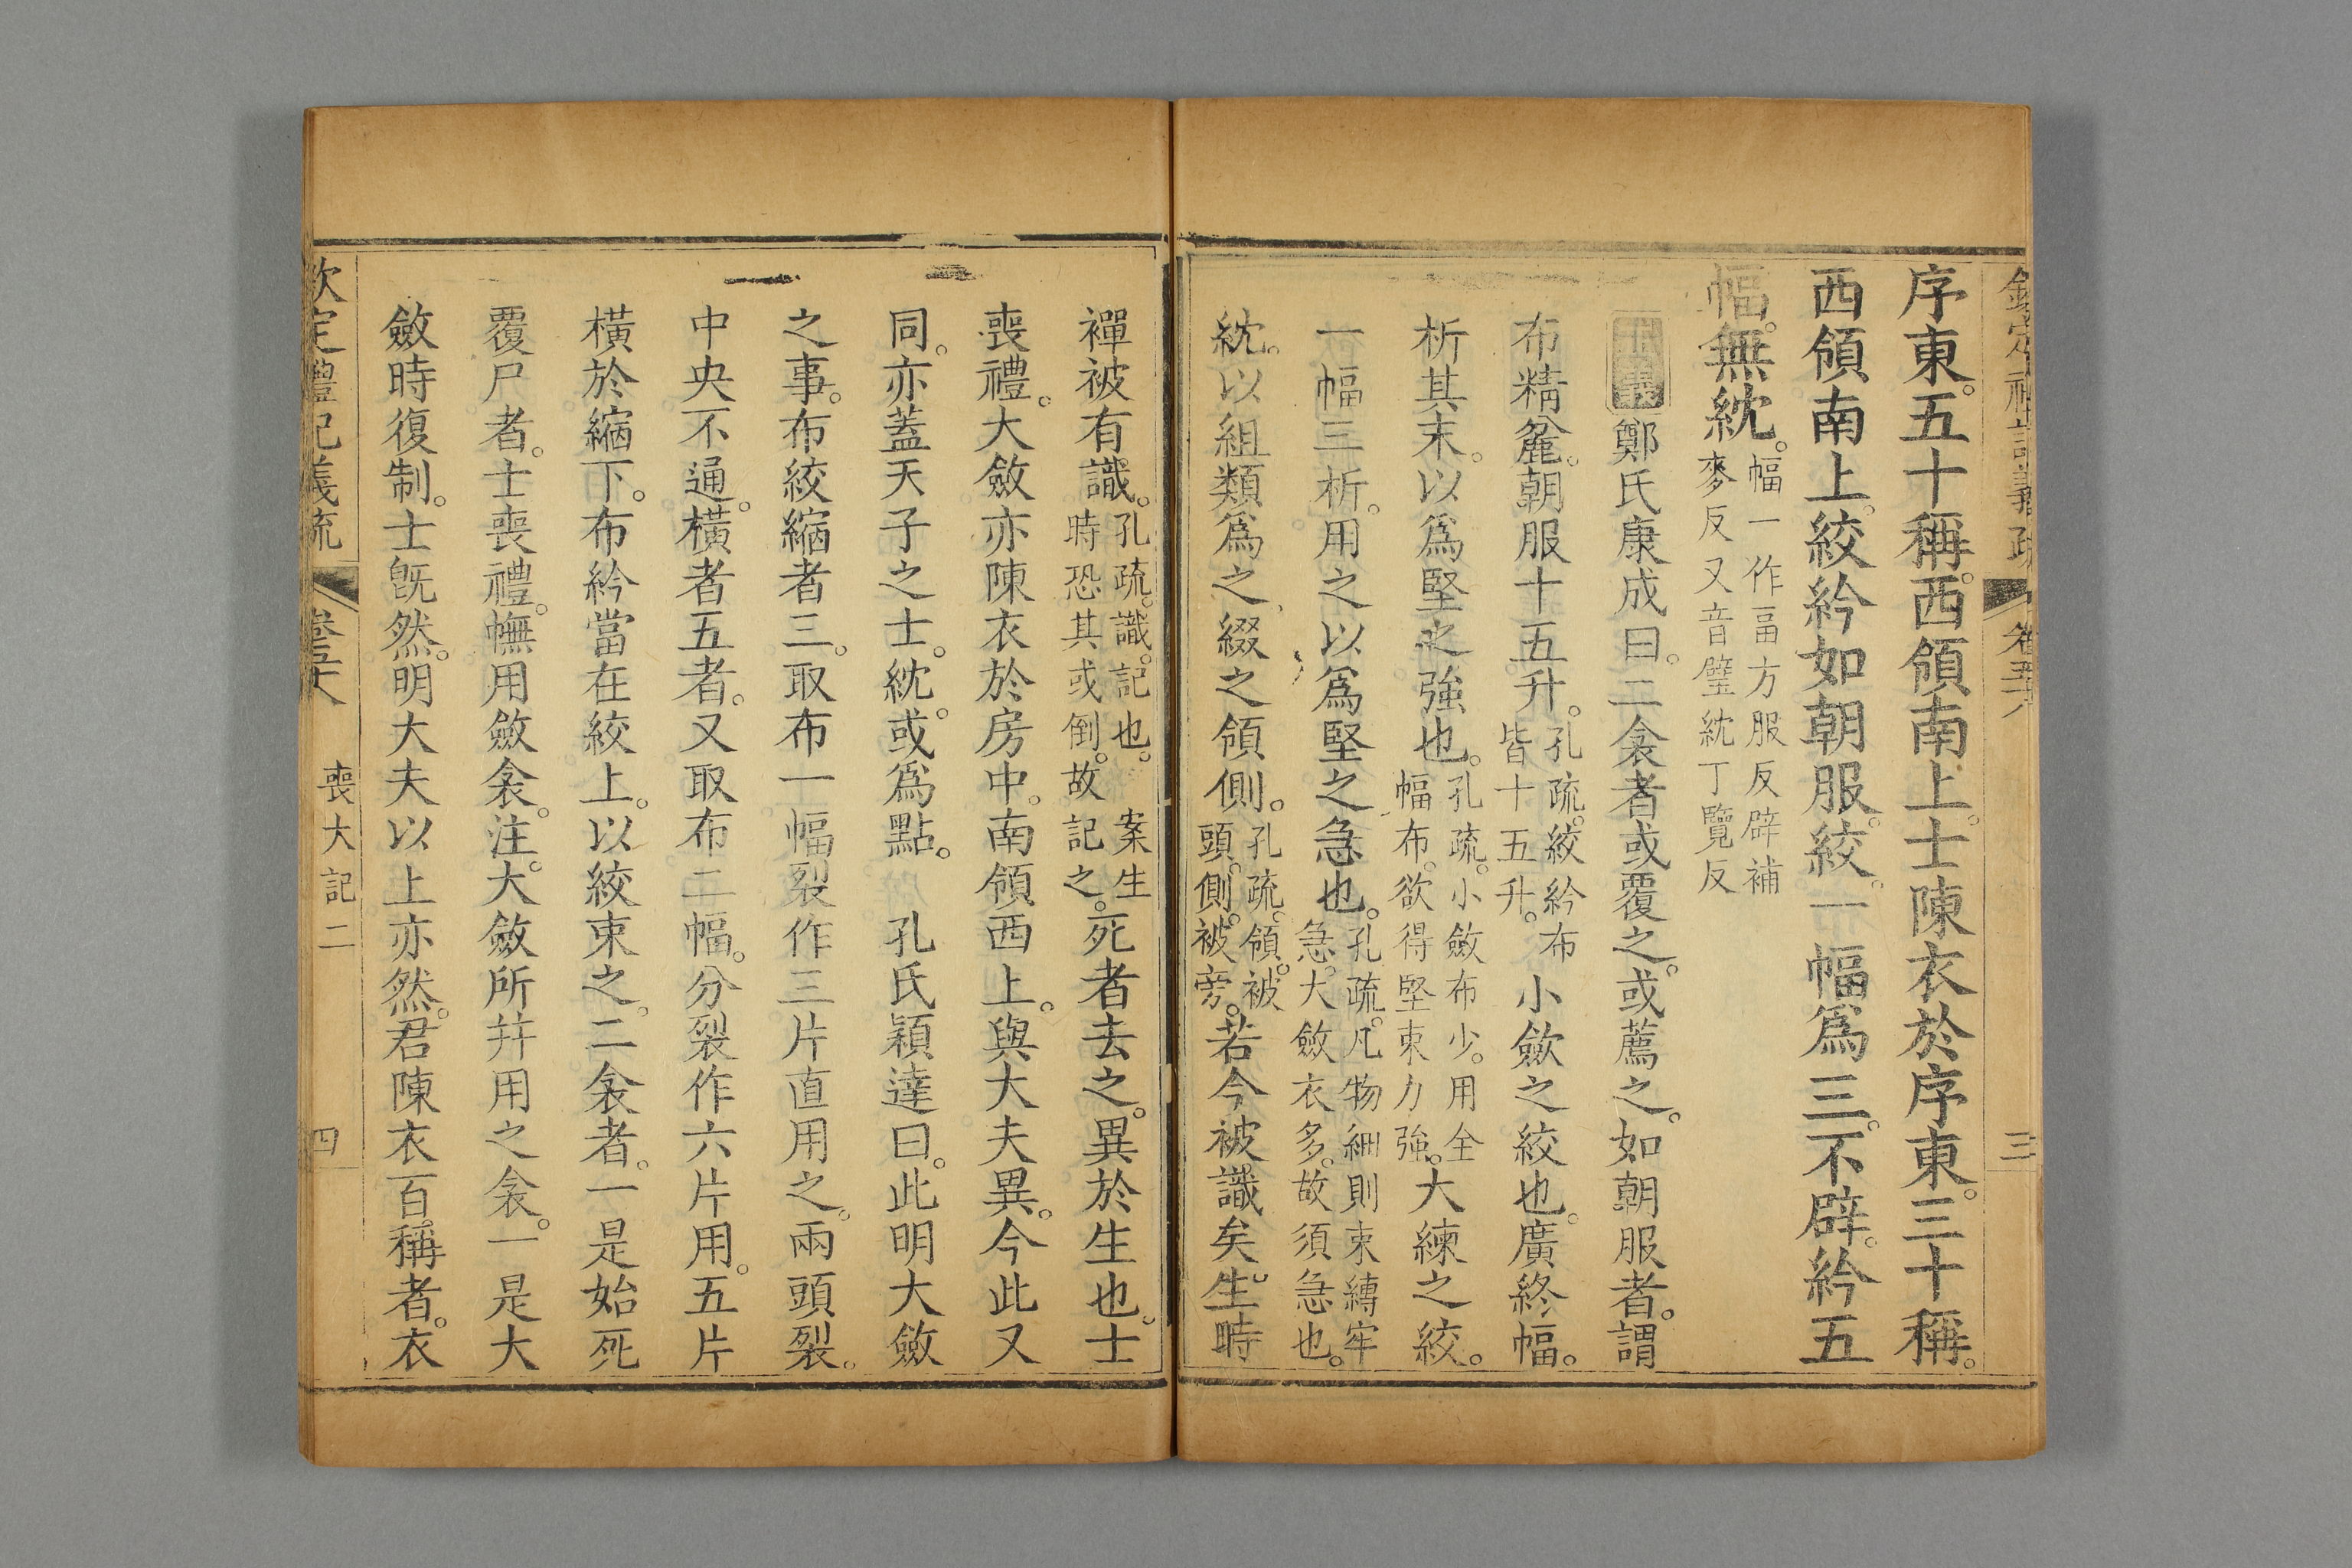 欽定禮記義疏 卷五十八 三
序東。五十稱。西領南上。士陳衣於序東。三十稱。
西領南上。絞紟如朝服。絞。一幅爲三。不辟。紟五
幅。無紞。幅一作畐方服反辟補
麥反又音璧紞丁覽反
正義鄭氏康成曰。二衾者或覆之。或薦之。如朝服者。謂
布精麤。朝服十五升。孔疏。絞紟布
皆十五升。小斂之絞也。廣終幅。
析其末。以爲堅之強也。孔疏。小斂布少。用全
幅布。欲得堅束力強。大練之絞。
一幅三析。用之以爲堅之急也。孔疏。凡物細則束縛牢
急。大斂衣多。故須急也。
紞。以組類爲之。綴之領側。孔疏。領。被
頭。側。被旁。若今被識矣。生時
襌被有識。孔疏。識。記也。案生
時恐其或倒。故記之。死者去之。異於生也。士
喪禮。大斂亦陳衣於房中。南領西上。與大夫異。今此又
同。亦蓋天子之士。紞。或爲點。孔氏穎達曰。此明大斂
之事。布絞縮者三。取布一幅裂作三片直用之。兩頭裂。
中央不通。橫者五者。又取布二幅。分裂作六片用。五片
橫於縮下。布紟當在絞上。以絞束之。二衾者。一是始死
覆尸者。士喪禮。幠用斂衾。注。大斂所幷用之衾。一是大
斂時復制。士旣然。明大夫以上亦然。君陳衣百稱者。衣
欽定禮記義疏 卷五十八 喪大記二 四